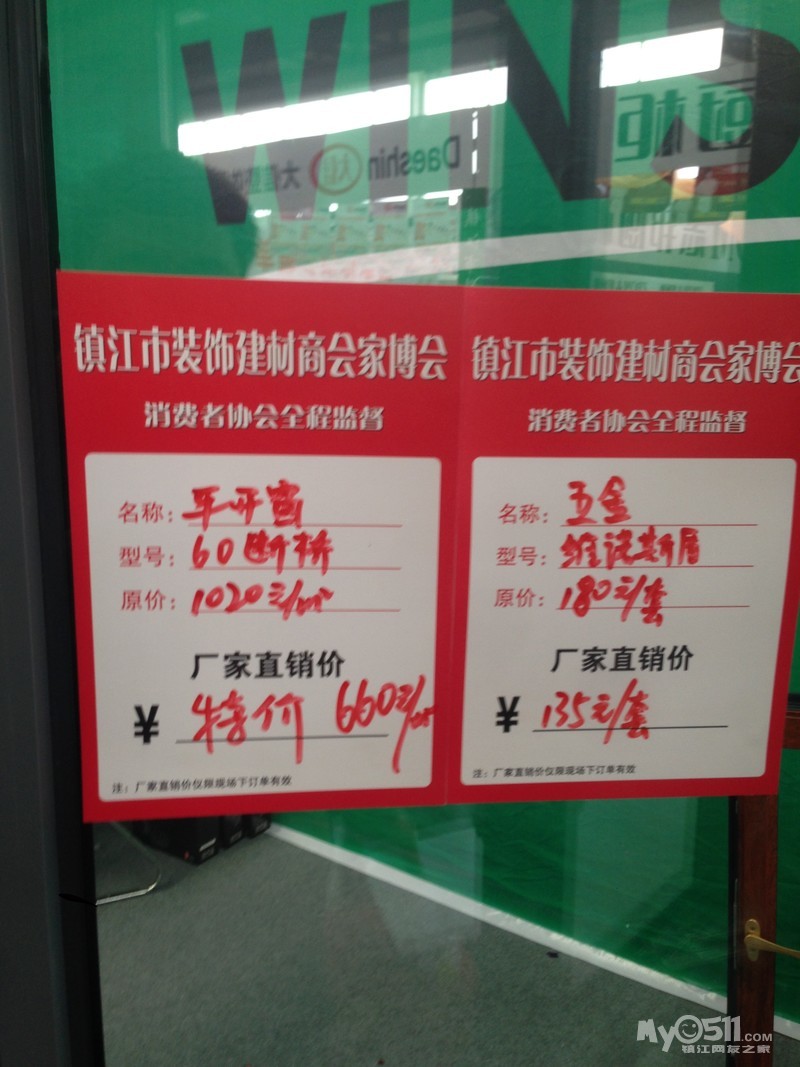 WINS
Daeshin
镇江市装饰建材商会家博会
消费者协会全程监督
名称：平开窗
型号：60断桥
原价：1020元/㎡
厂家直销价
¥ 特价 660元/㎡
注：厂家直销价仅限现场下订单有效
镇江市装饰建材商会家博会
消费者协会全程监督
名称：五金
型号：
原价：180元/套
厂家直销价
¥ 135元/套
注：厂家直销价仅限现场下订单有效
My0511.COM
镇江网友之家